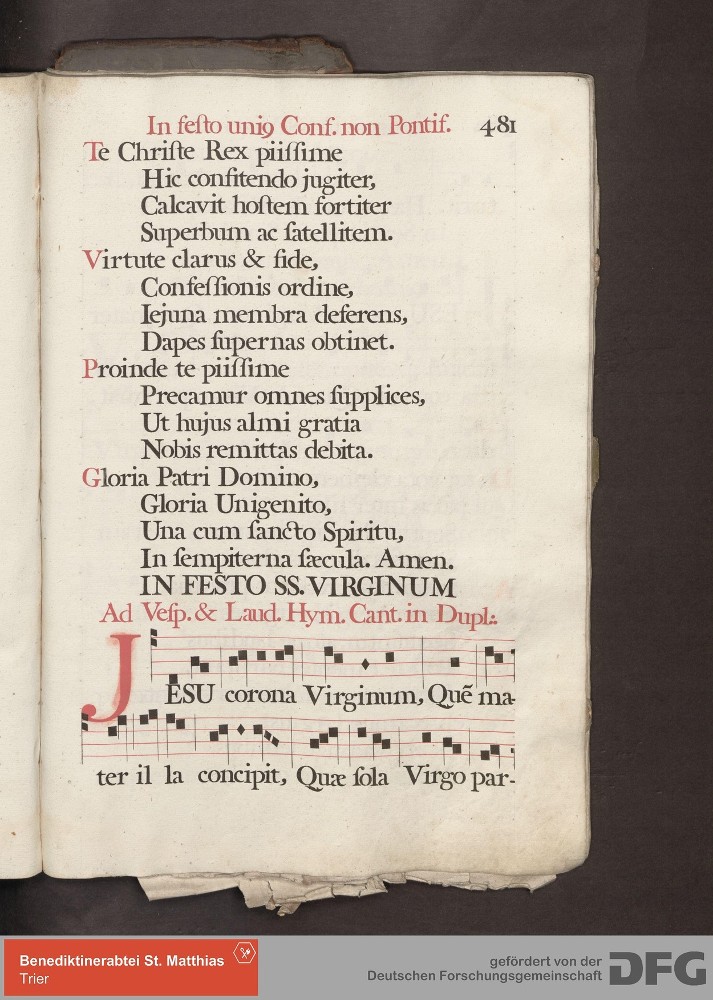 In feſto uniꝯ Conf. non Pontif. 481
Te Chriſte Rex piiſſime
Hic confitendo jugiter,
Calcavit hoſtem fortiter
Superbum ac ſatellitem.
Virtute clarus & fide,
Confeſſionis ordine,
Iejuna membra deferens,
Dapes ſupernas obtinet.
Proinde te piiſſime
Precamur omnes ſupplices,
Ut hujus almi gratia
Nobis remittas debita.
Gloria Patri Domino,
Gloria Unigenito,
Una cum ſancto Spiritu,
In ſempiterna ſæcula. Amen.
IN FESTO SS. VIRGINUM
Ad Veſp. & Laud. Hym. Cant. in Dupl:.
JESU corona Virginum, Quẽ ma-
ter il la concipit, Quæ ſola Virgo par-
Benediktinerabtei St. Matthias
Trier
gefördert von der
Deutschen Forschungsgemeinschaft DFG